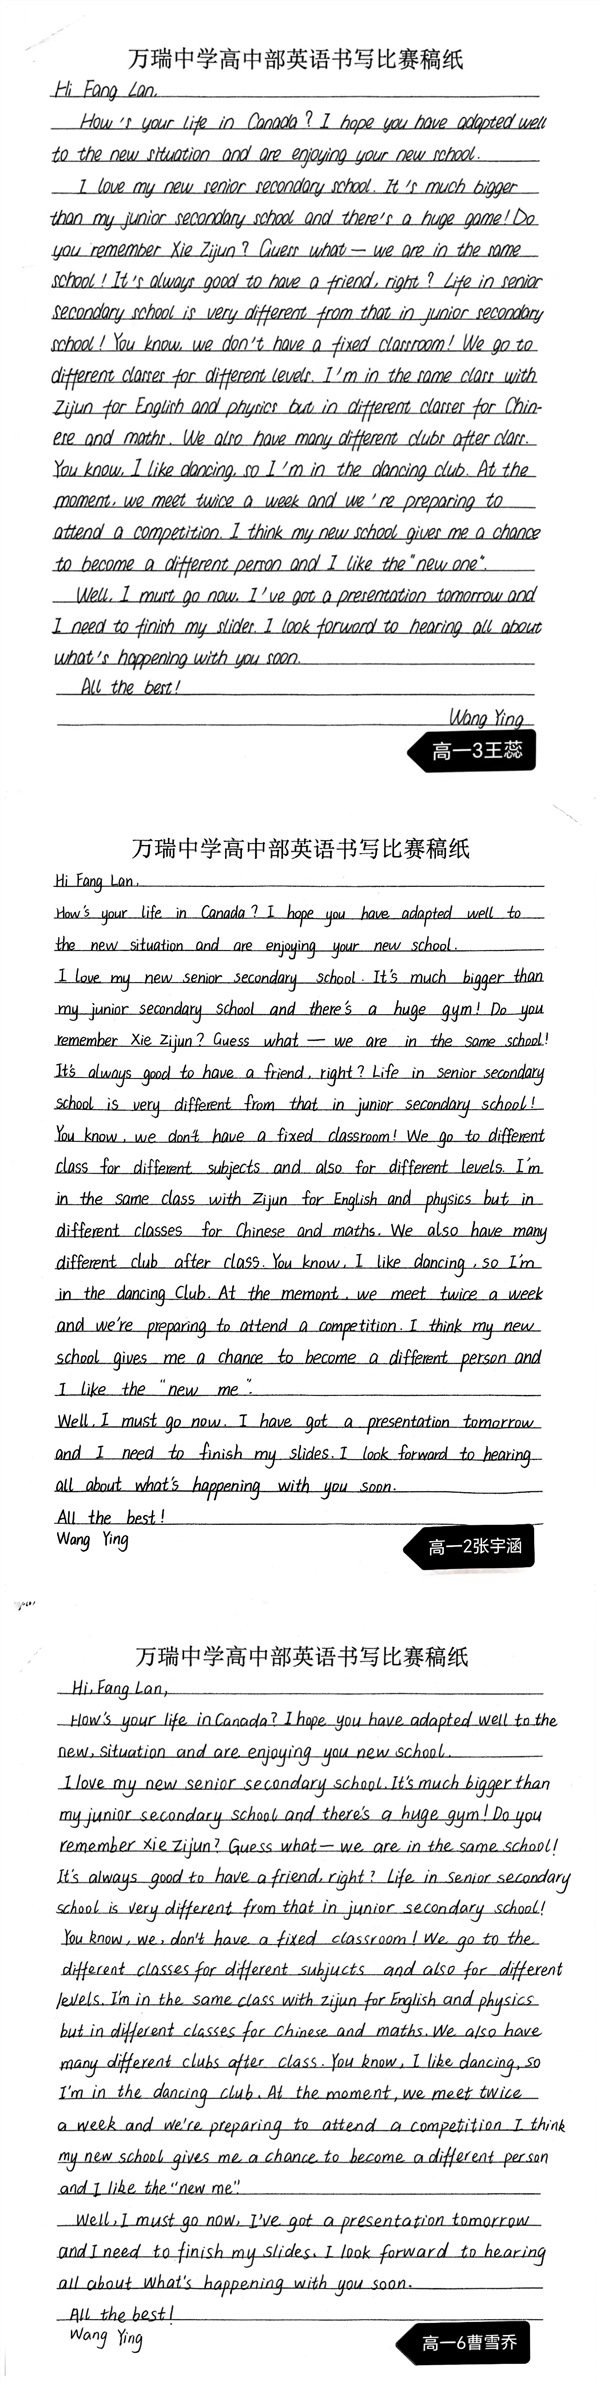 万瑞中学高中部英语书写比赛稿纸
Hi Fang Lan,
How's your life in Canada? I hope you have adapted well
to the new situation and are enjoying your new school.
I love my new senior secondary school. It's much bigger
than my junior secondary school and there's a huge game! Do
you remember Xie Zijun? Guess what — we are in the same
school! It's always good to have a friend, right? Life in senior
secondary school is very different from that in junior secondary
school! You know, we don't have a fixed classroom! We go to
different classes for different levels. I'm in the same class with
Zijun for English and physics but in different classes for Chin-
ese and maths. We also have many different clubs after class.
You know, I like dancing, so I'm in the dancing club. At the
moment, we meet twice a week and we're preparing to
attend a competition. I think my new school gives me a chance
to become a different person and I like the "new one".
Well, I must go now. I've got a presentation tomorrow and
I need to finish my slides. I look forward to hearing all about
what's happening with you soon.
All the best!
Wang Ying
高一3王蕊
万瑞中学高中部英语书写比赛稿纸
Hi Fang Lan,
How's your life in Canada? I hope you have adapted well to
the new situation and are enjoying your new school.
I love my new senior secondary school. It's much bigger than
my junior secondary school and there's a huge gym! Do you
remember Xie Zijun? Guess what — we are in the same school!
It's always good to have a friend, right? Life in senior secondary
school is very different from that in junior secondary school!
You know, we don't have a fixed classroom! We go to different
class for different subjects and also for different levels. I'm
in the same class with Zijun for English and physics but in
different classes for Chinese and maths. We also have many
different club after class. You know, I like dancing, so I'm
in the dancing Club. At the memont, we meet twice a week
and we're preparing to attend a competition. I think my new
school gives me a chance to become a different person and
I like the "new me".
Well, I must go now. I have got a presentation tomorrow
and I need to finish my slides. I look forward to hearing
all about what's happening with you soon.
All the best!
Wang Ying
高一2张宇涵
万瑞中学高中部英语书写比赛稿纸
Hi, Fang Lan,
How's your life in Canada? I hope you have adapted well to the
new, situation and are enjoying you new school.
I love my new senior secondary school. It's much bigger than
my junior secondary school and there's a huge gym! Do you
remember Xie Zijun? Guess what — we are in the same school!
It's always good to have a friend, right? Life in senior secondary
school is very different from that in junior secondary school!
You know, we, don't have a fixed classroom! We go to the
different classes for different subjucts and also for different
levels. I'm in the same class with Zijun for English and physics
but in different classes for Chinese and maths. We also have
many different clubs after class. You know, I like dancing, so
I'm in the dancing club. At the moment, we meet twice
a week and we're preparing to attend a competition I think
my new school gives me a chance to become a different person
and I like the "new me".
Well, I must go now, I've got a presentation tomorrow
and I need to finish my slides. I look forward to hearing
all about what's happening with you soon.
All the best!
Wang Ying
高一6曹雪乔